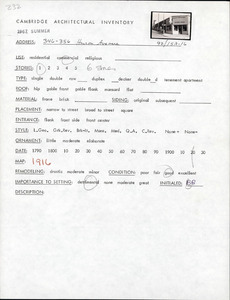 CAMBRIDGE ARCHITECTURAL INVENTORY
1967 SURVEY
ADDRESS: 346-356 Huron Avenue
USE: residential commercial religious
STORIES: 1 2 3 4 5 6
TYPE: single double row duplex decker double d apartment
ROOF: hip gable front gable flank mansard flat
MATERIAL: frame brick SIDING: original subsequent
PLACEMENT: narrow to street broad to street square
ENTRANCE: flank front side front center
ORNAMENT: little moderate elaborate
DATE: 1790 1800 10 20 30 40 50 60 70 80 90 1900 10 20 30
MAP: 1916
REMODELING: drastic moderate minor CONDITION: poor fair good excellent
IMPORTANCE TO SETTING: detrimental none moderate great INITIALED:
DESCRIPTION: